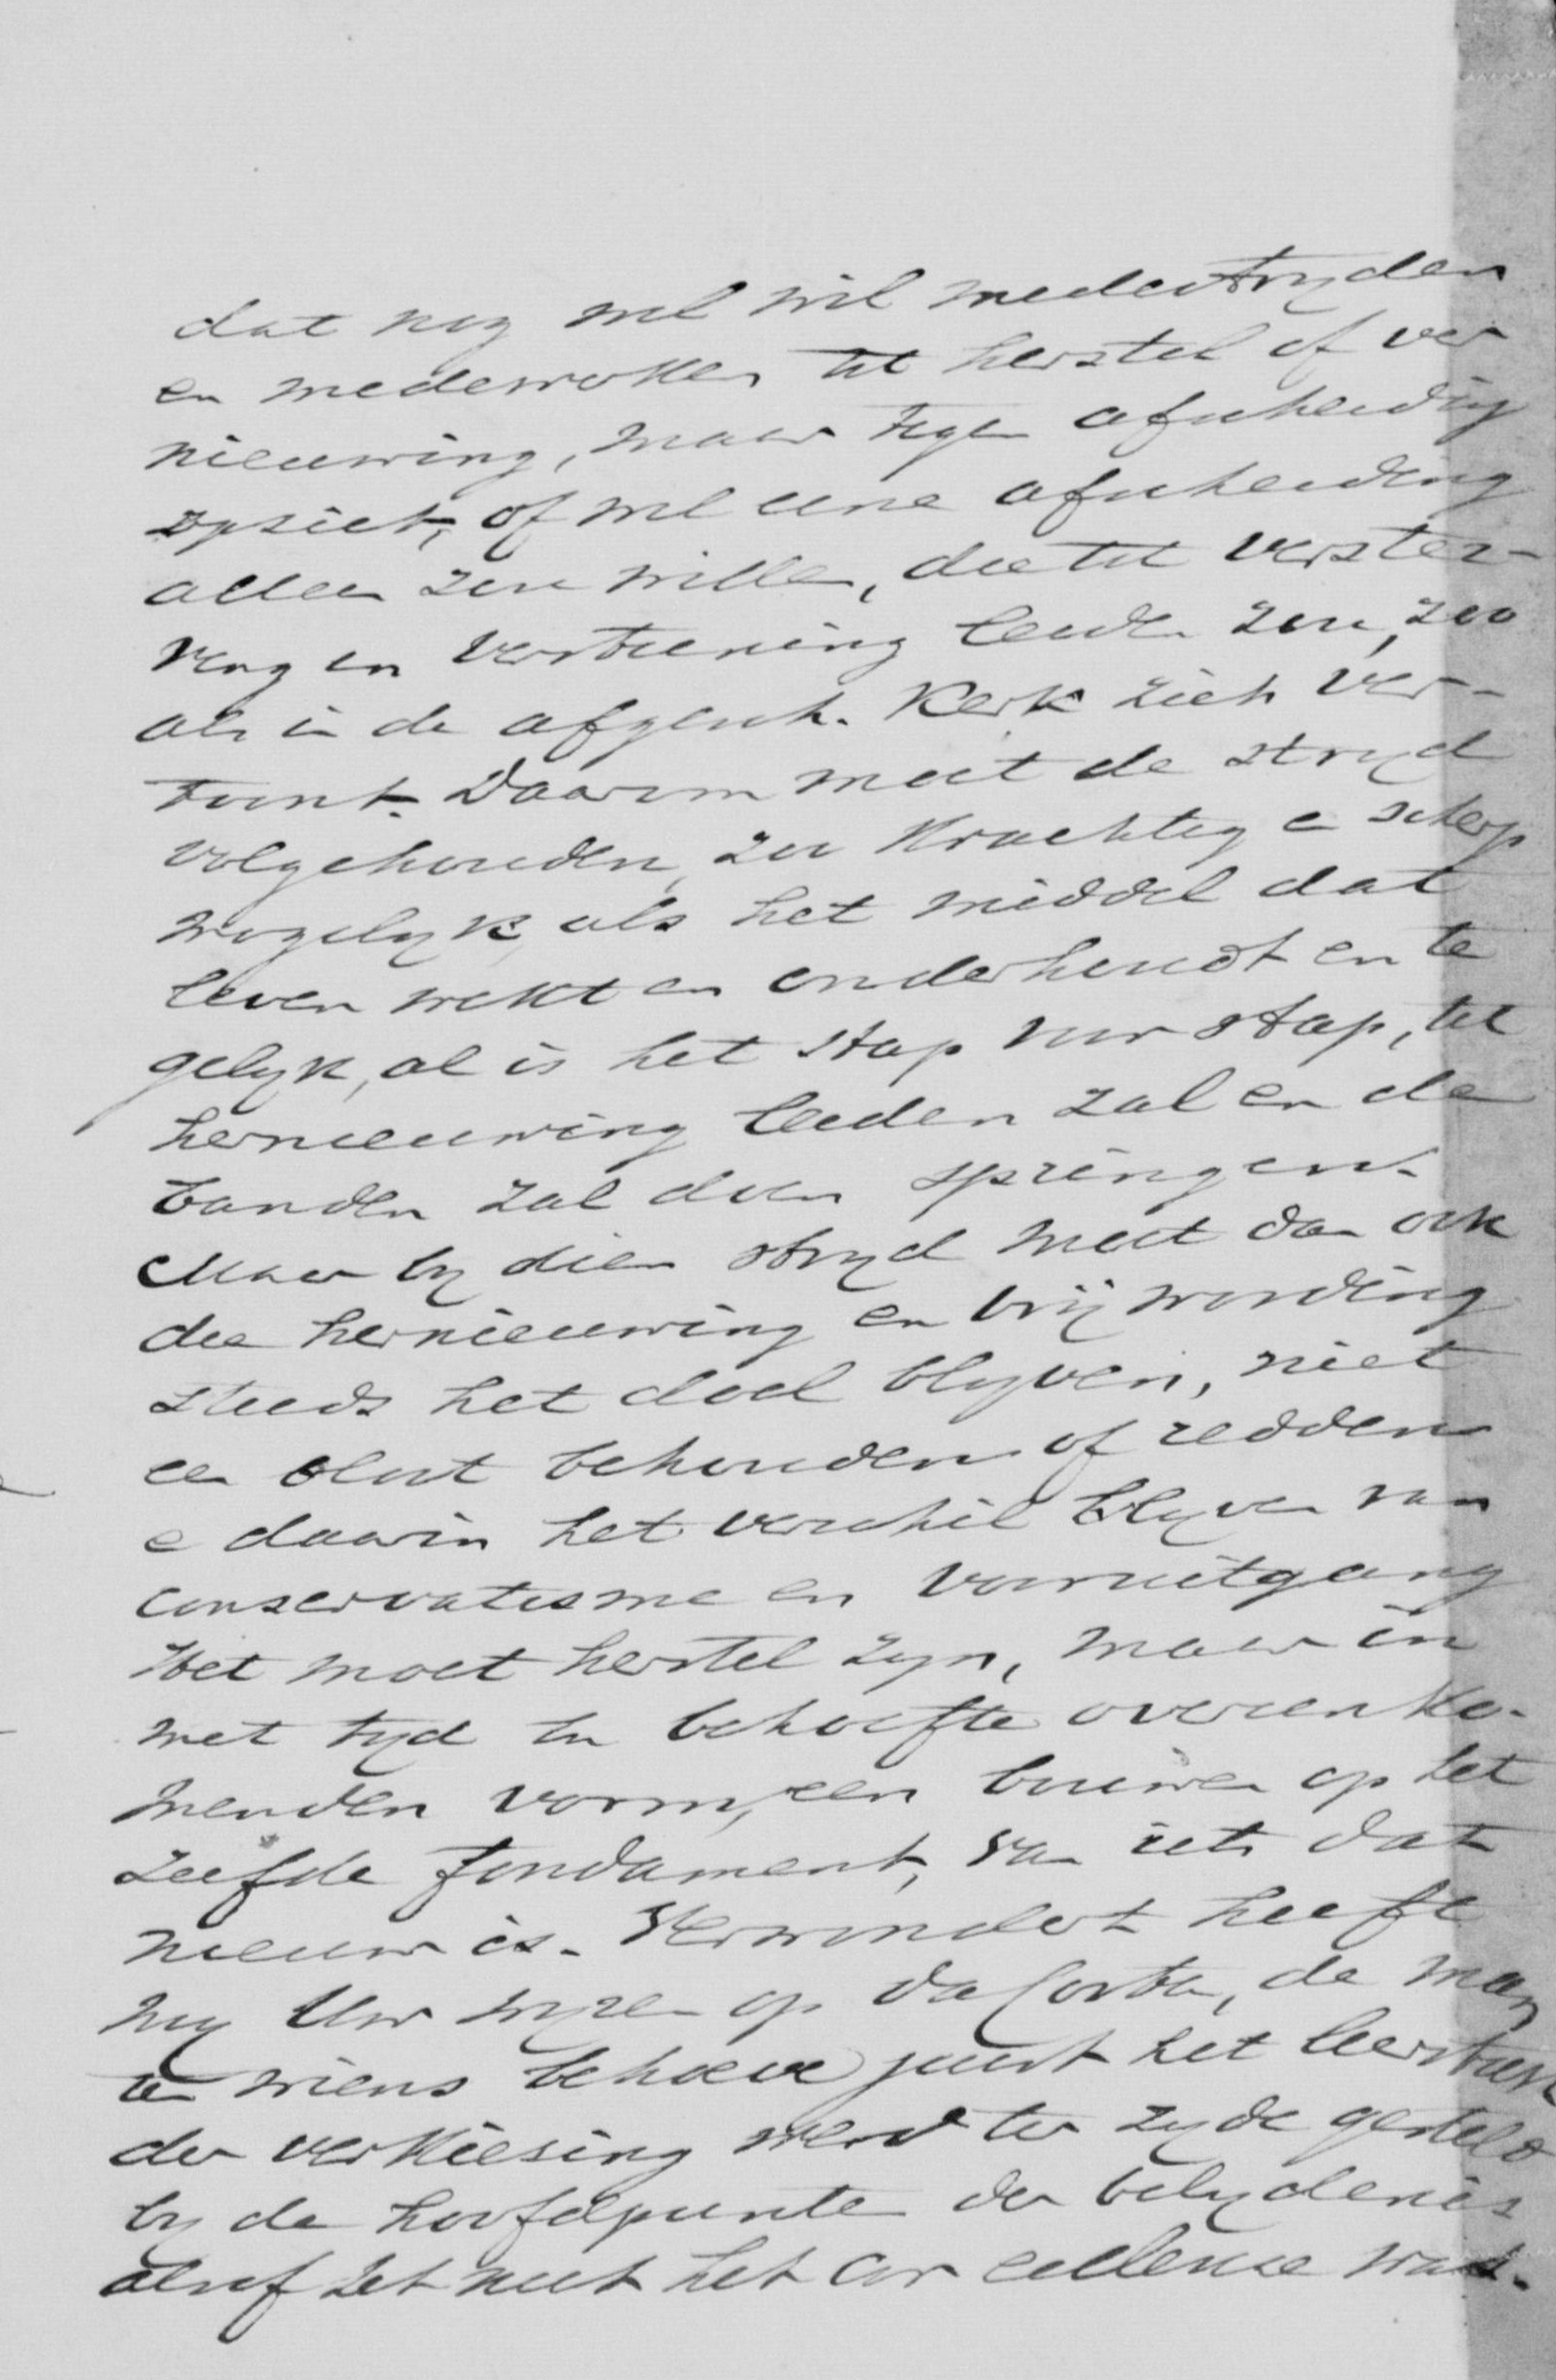 dat nog wel wil medestryden
en medewerken tot herstel of ver
nieuwing, maar tegen afscheiding
opziet, of wel eene afscheiding
alleen zou willen, die tot verster-
ving en versteening leiden zou, zoo
als in de afgesch. Kerk zich ver-
toont. Daarom moet de stryd
volgehouden, zoo krachtig en scherp
mogelyk, als het middel dat
leven wekt en onderhoudt en te
gelyk, al is het stap voor stap, tot
hernieuwing leiden zal en de
banden zal doen springen.
Maar by dien stryd moet dan ook
die hernieuwing en vrijwording
steeds het doel blyven, niet
een bloot behouden of redden
en daarin het verschil blyven van
conservatisme en vooruitgang
Het moet herstel zyn, maar in
met tyd en behoefte overeenko-
menden vorm, een bouwen op het
zelfde fondament, van iets dat
nieuw is. Verwonderd heeft
my Uw wyzen op da Costa, de man
ten wiens behoeve juist het leerstuk
der verkiesing werd ter zyde gesteld
by de hoofdpunten der belydenis
alsof het niet het cor eccleside was.